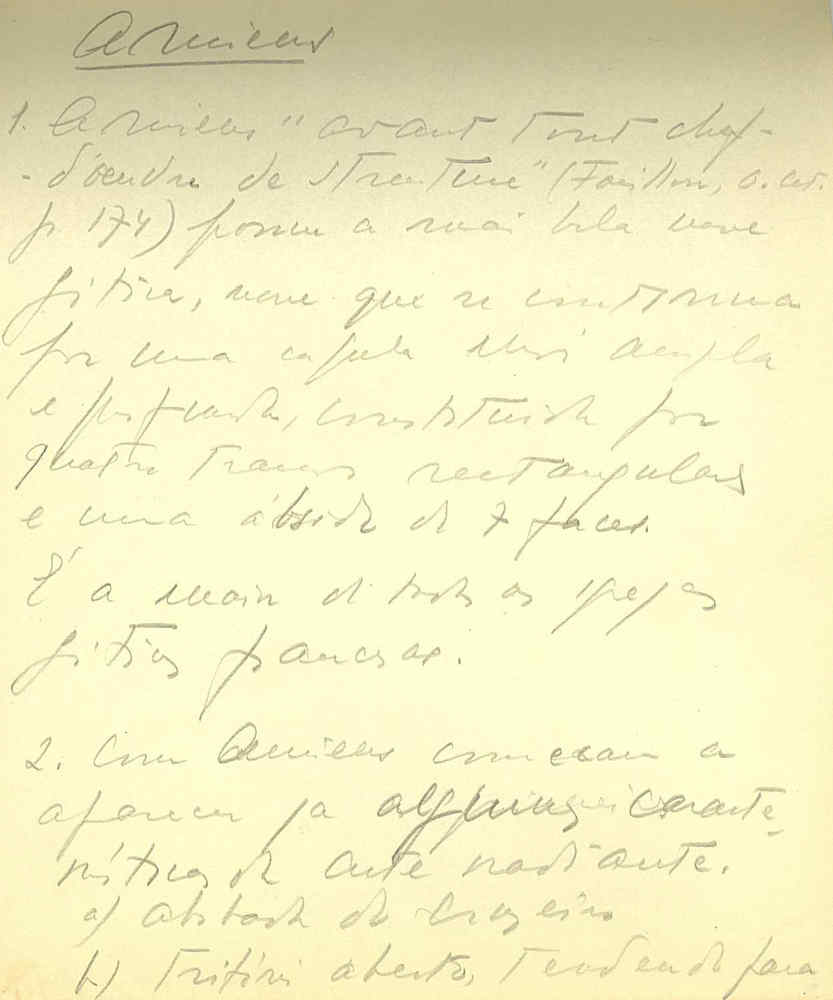 Amiens
1. Amiens "avant tout chef-
-d'oeuvre de structure" (Focillon, o. cit.
p. 174) possui a mais bela nave
gótica, nave que se continua
por uma capela mais ampla
e profunda, constituida por
quatro tramos rectangulares
e uma ábside de 7 faces.
É a maior de todas as igrejas
góticas francesas.
2. Com Amiens começam a
aparecer já algumas caracte-
rísticas da arte radiante.
a) abóbada do cruzeiro
b) Trifório aberto, tendendo para